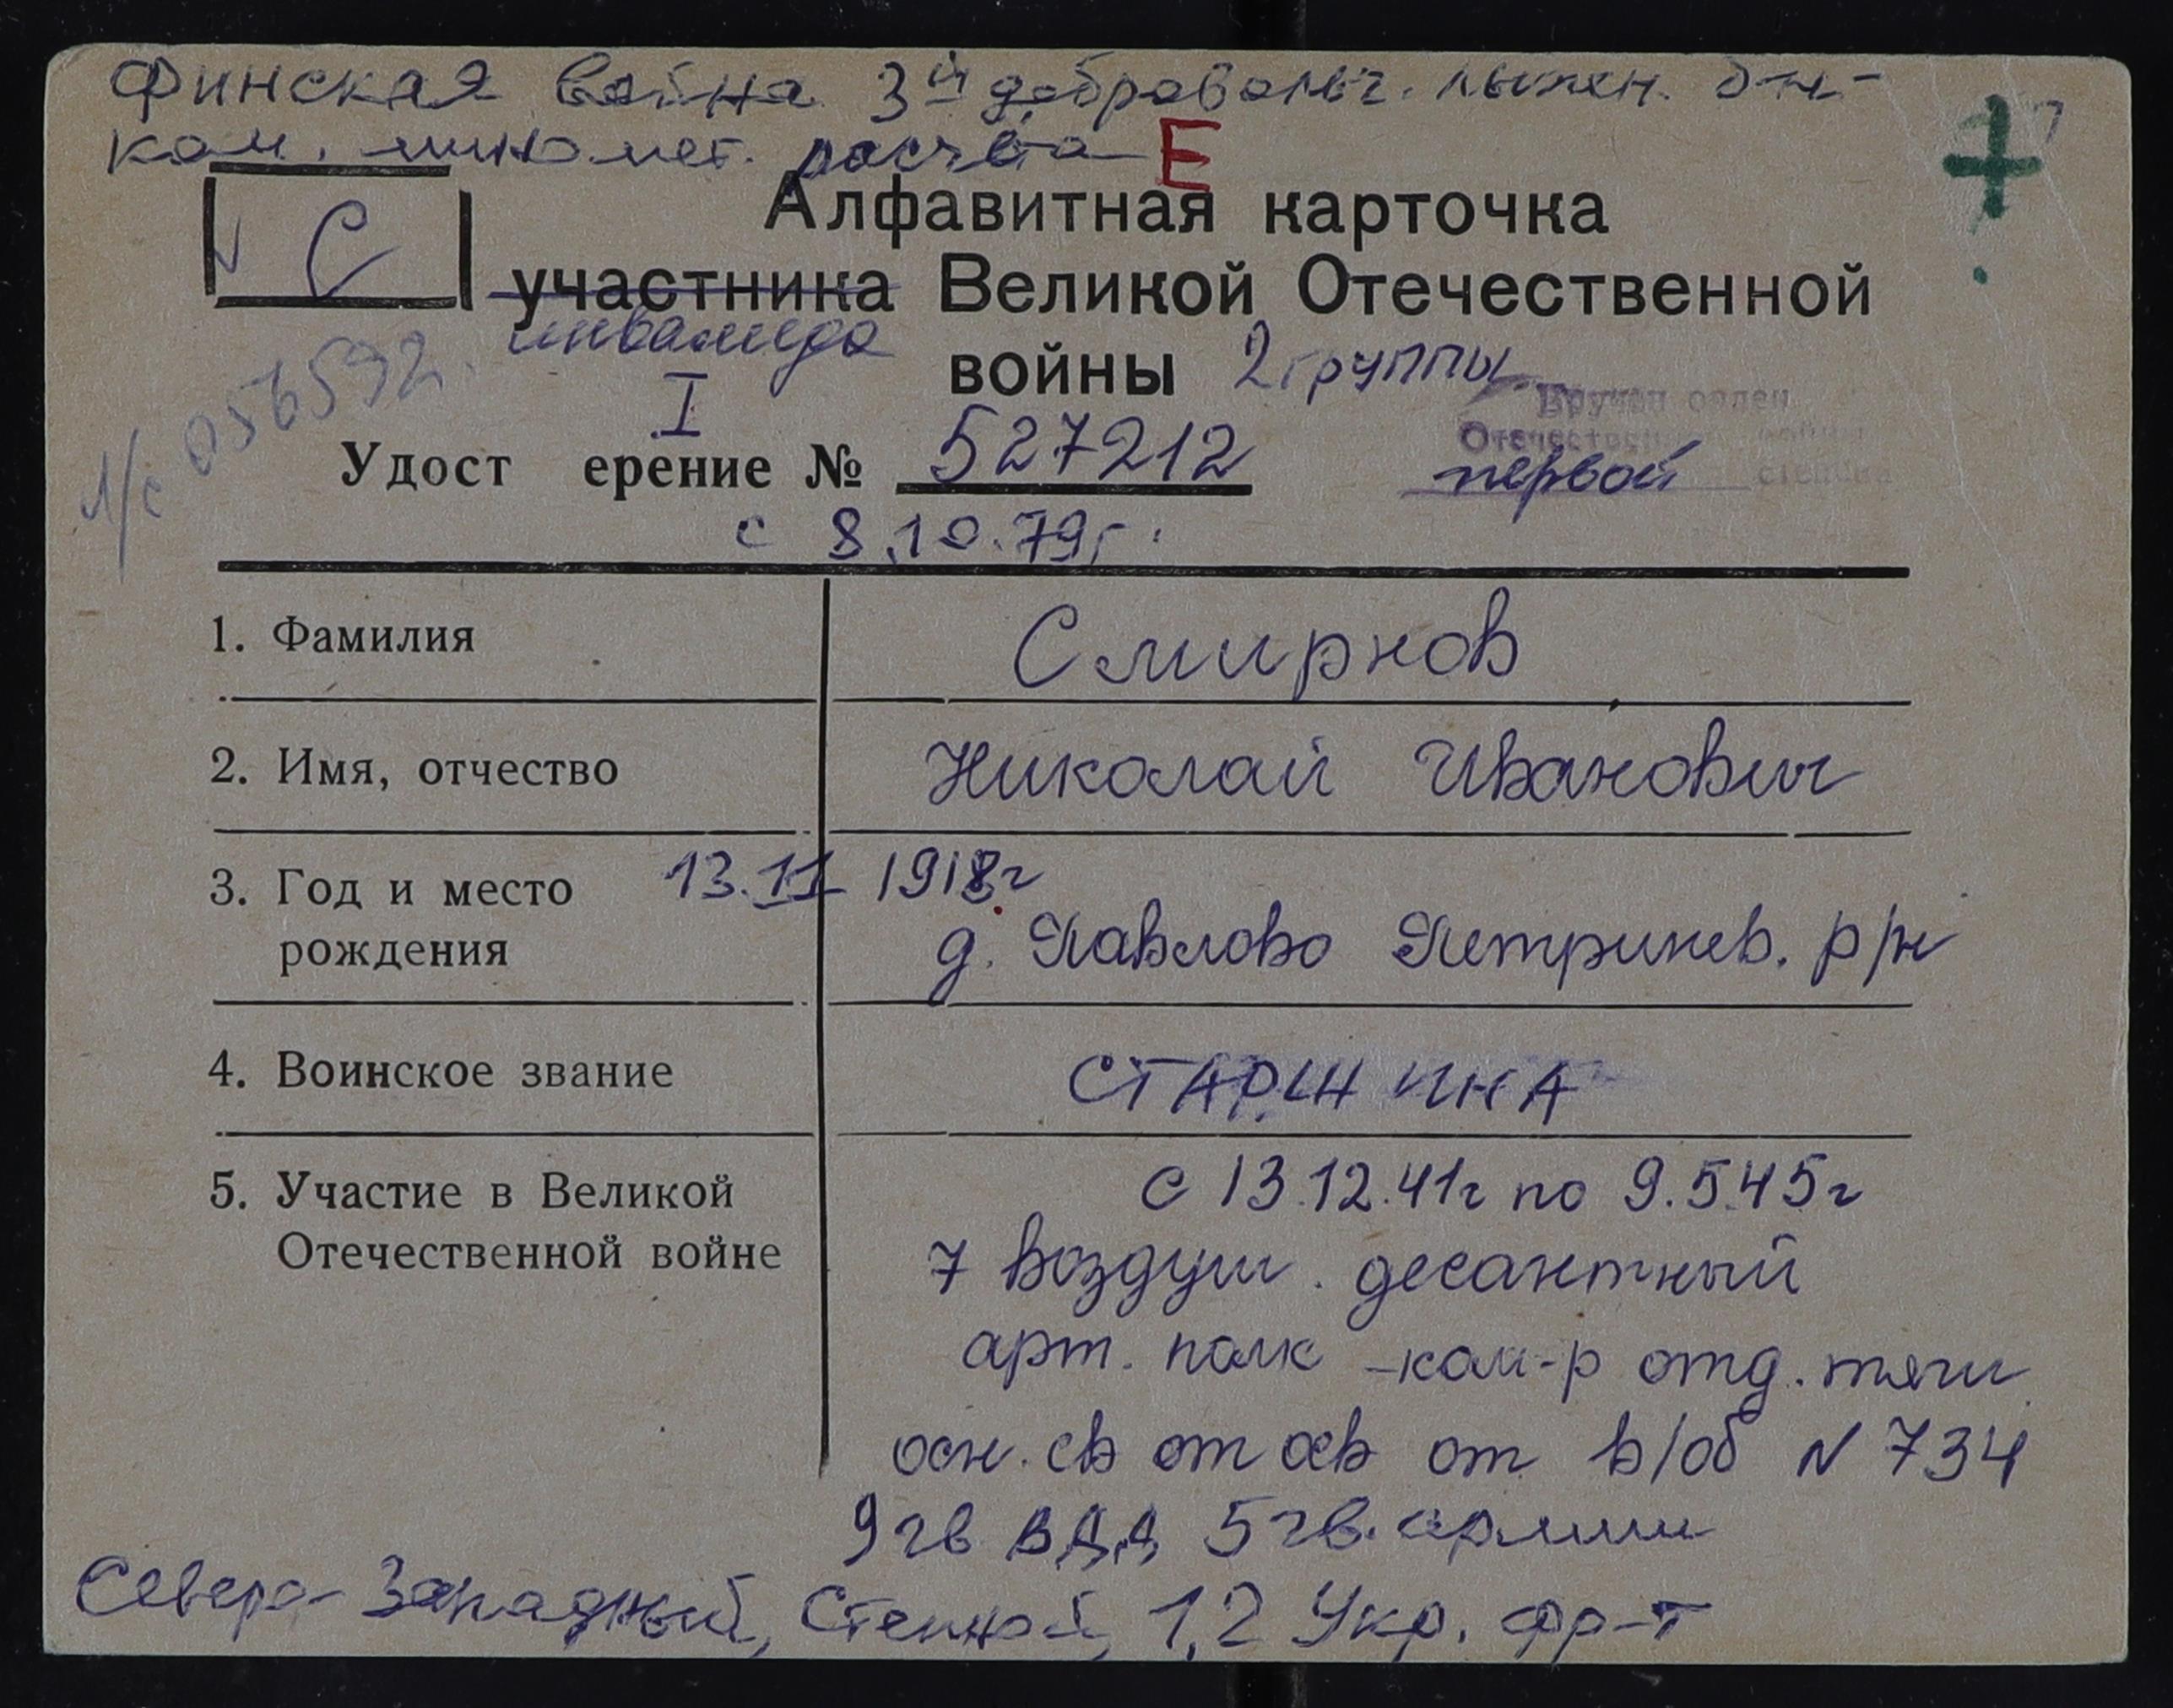 Финская война 3й добровольч. лыжен. б-н-
ком. миномет. расчёта Е
Алфавитная карточка
С
участника Великой Отечественной
инвалида
войны 2 группы
Вручен орден
Отечественной войны
первой степени
л/с 056592
I
Удост ерение № 527212
с 8.10.79г.
1. Фамилия Смирнов
2. Имя, отчество Николай Иванович
3. Год и место 13.11 1918г
рождения д. Павлово Петринев. р/н
4. Воинское звание СТАРШИНА
5. Участие в Великой с 13.12.41г по 9.5.45г
Отечественной войне 7 воздуш. десантный
арт. полк -ком-р отд. тяги
осн. св от от в/об N 734
9 гв ВДД 5 гв. армии
Северо-Западный, Степной, 1,2 Укр. фр-т